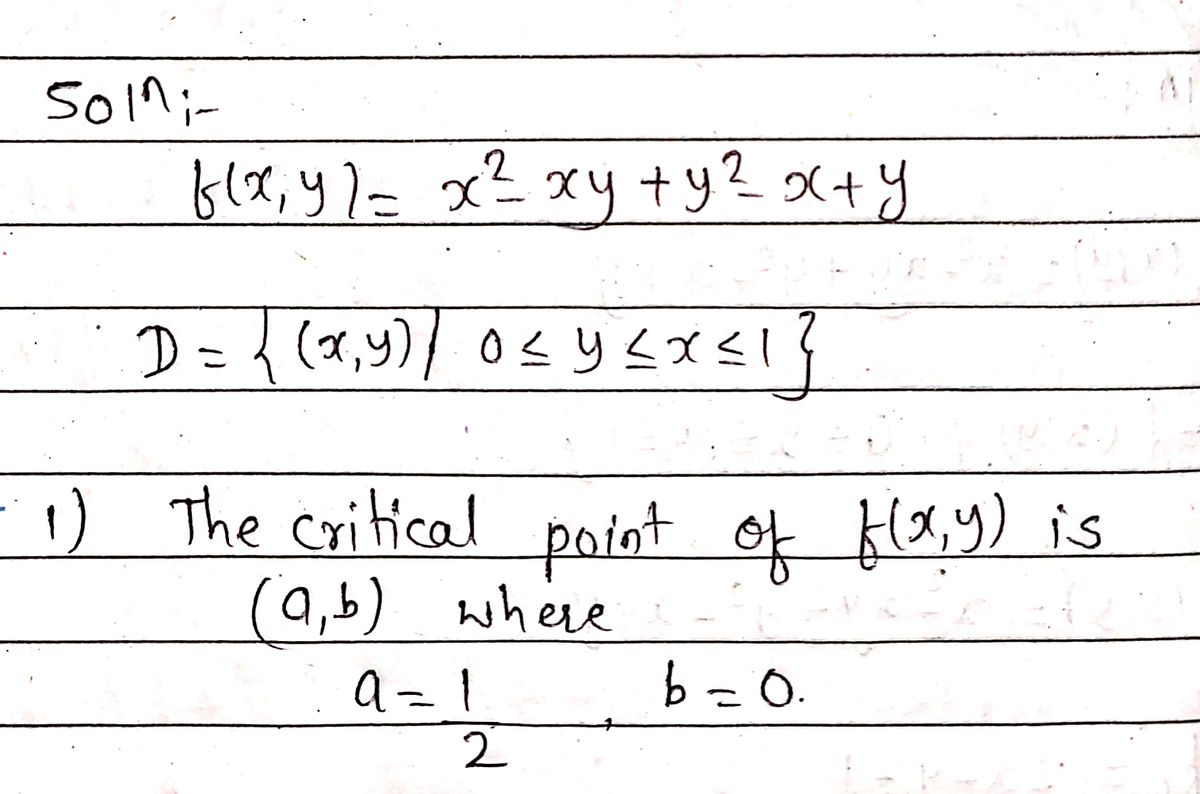 Soln:-
f(x,y) = x² - xy + y² - x + y
D = { (x,y) / 0 ≤ y ≤ x ≤ 1 }
1) The critical point of f(x,y) is
(a,b) where
a = 1/2, b = 0.